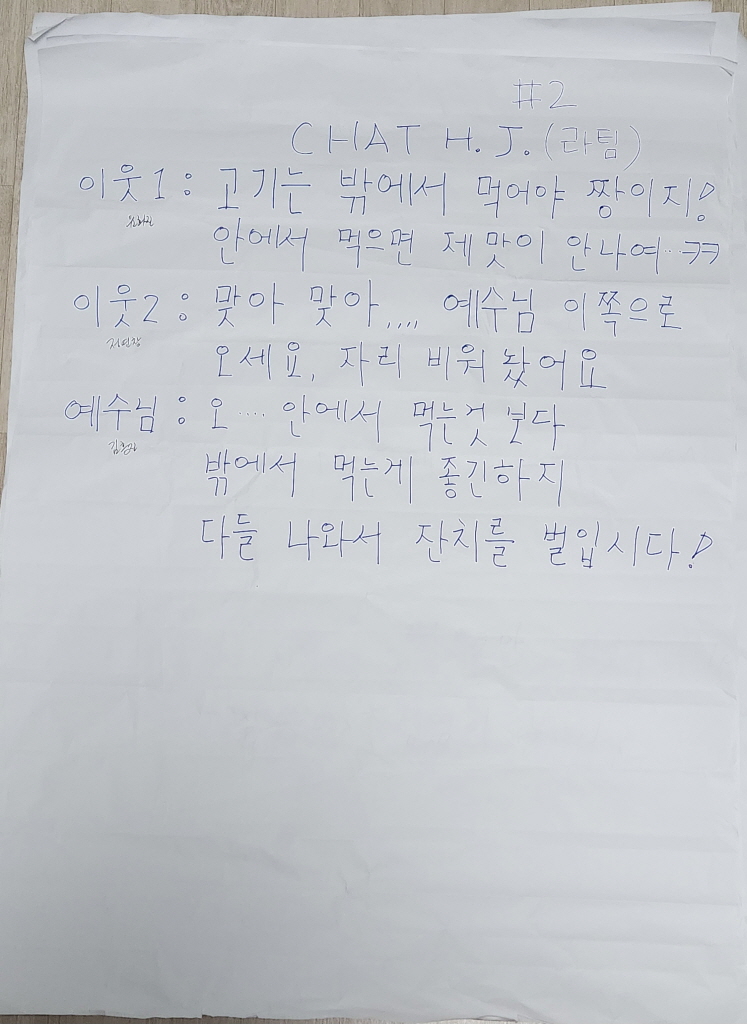 #2
CHAT H. J. (라팀)
이웃1 : 고기는 밖에서 먹어야 짱이지!
안에서 먹으면 제맛이 안나여..ㅋㅋ
이웃2 : 맞아 맞아,,,, 예수님 이쪽으로
오세요, 자리 비워 놨어요
예수님 : 오.... 안에서 먹는것 보다
밖에서 먹는게 좋긴하지
다들 나와서 잔치를 벌입시다!